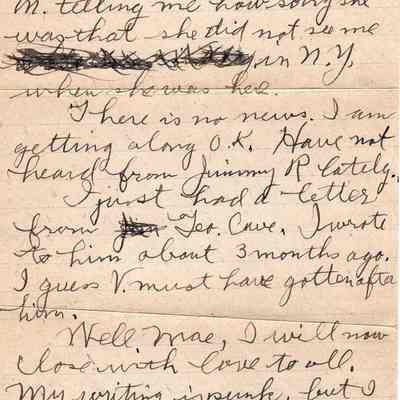 M. telling me how sorry she
was that she did not see me
in N.Y.
when she was here.
There is no news. I am
getting along O.K. Have not
heard from Jimmy R lately.
I just had a letter
from Geo. Cave. I wrote
to him about 3 months ago.
I guess V. must have gotten afta
him.
Well Mae, I will now
close with love to all.
My writing is punk, but I